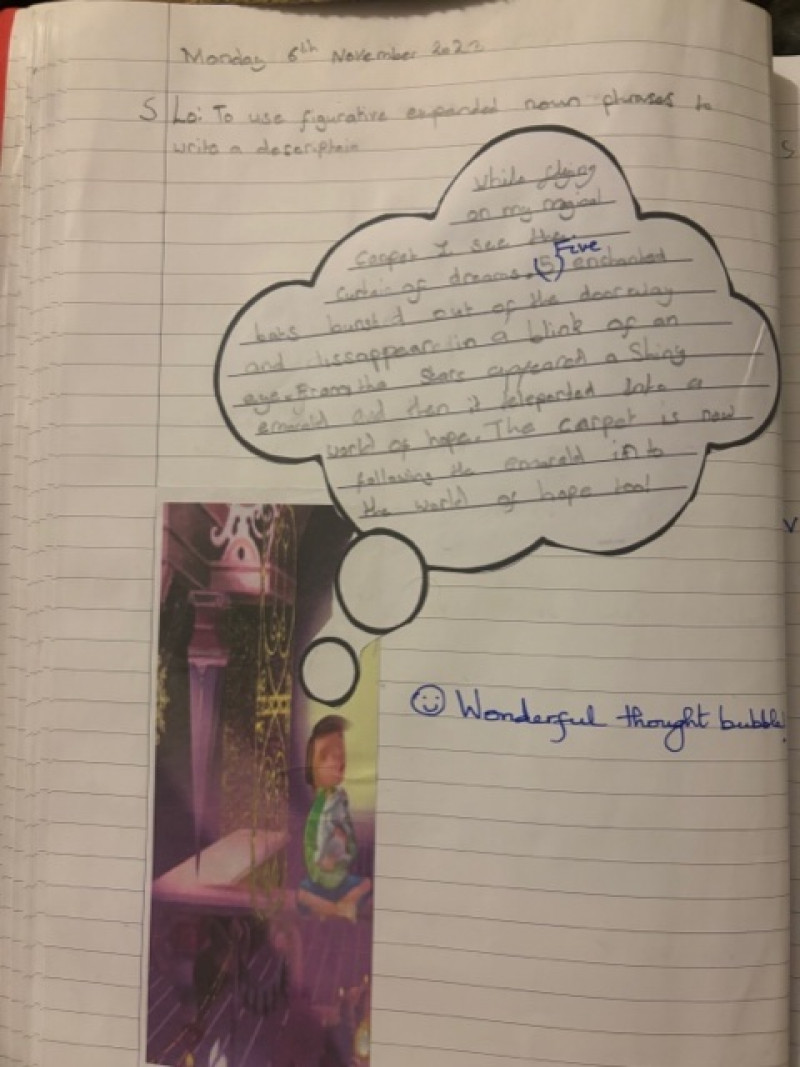 Monday 6th November 2022
S Lo: To use figurative expanded noun phrases to
write a description
While flying
on my magical
carpet I see the
Five
curtain of dreams. (5) enchanted
bats burst out of the doorway
and dissappear in a blink of an
eye. From the stars appeared a Shiny
emerald and then it teleported into a
world of hope. The carpet is now
following the emerald in to
the world of hope too!
☺ Wonderful thought bubble!
S
V